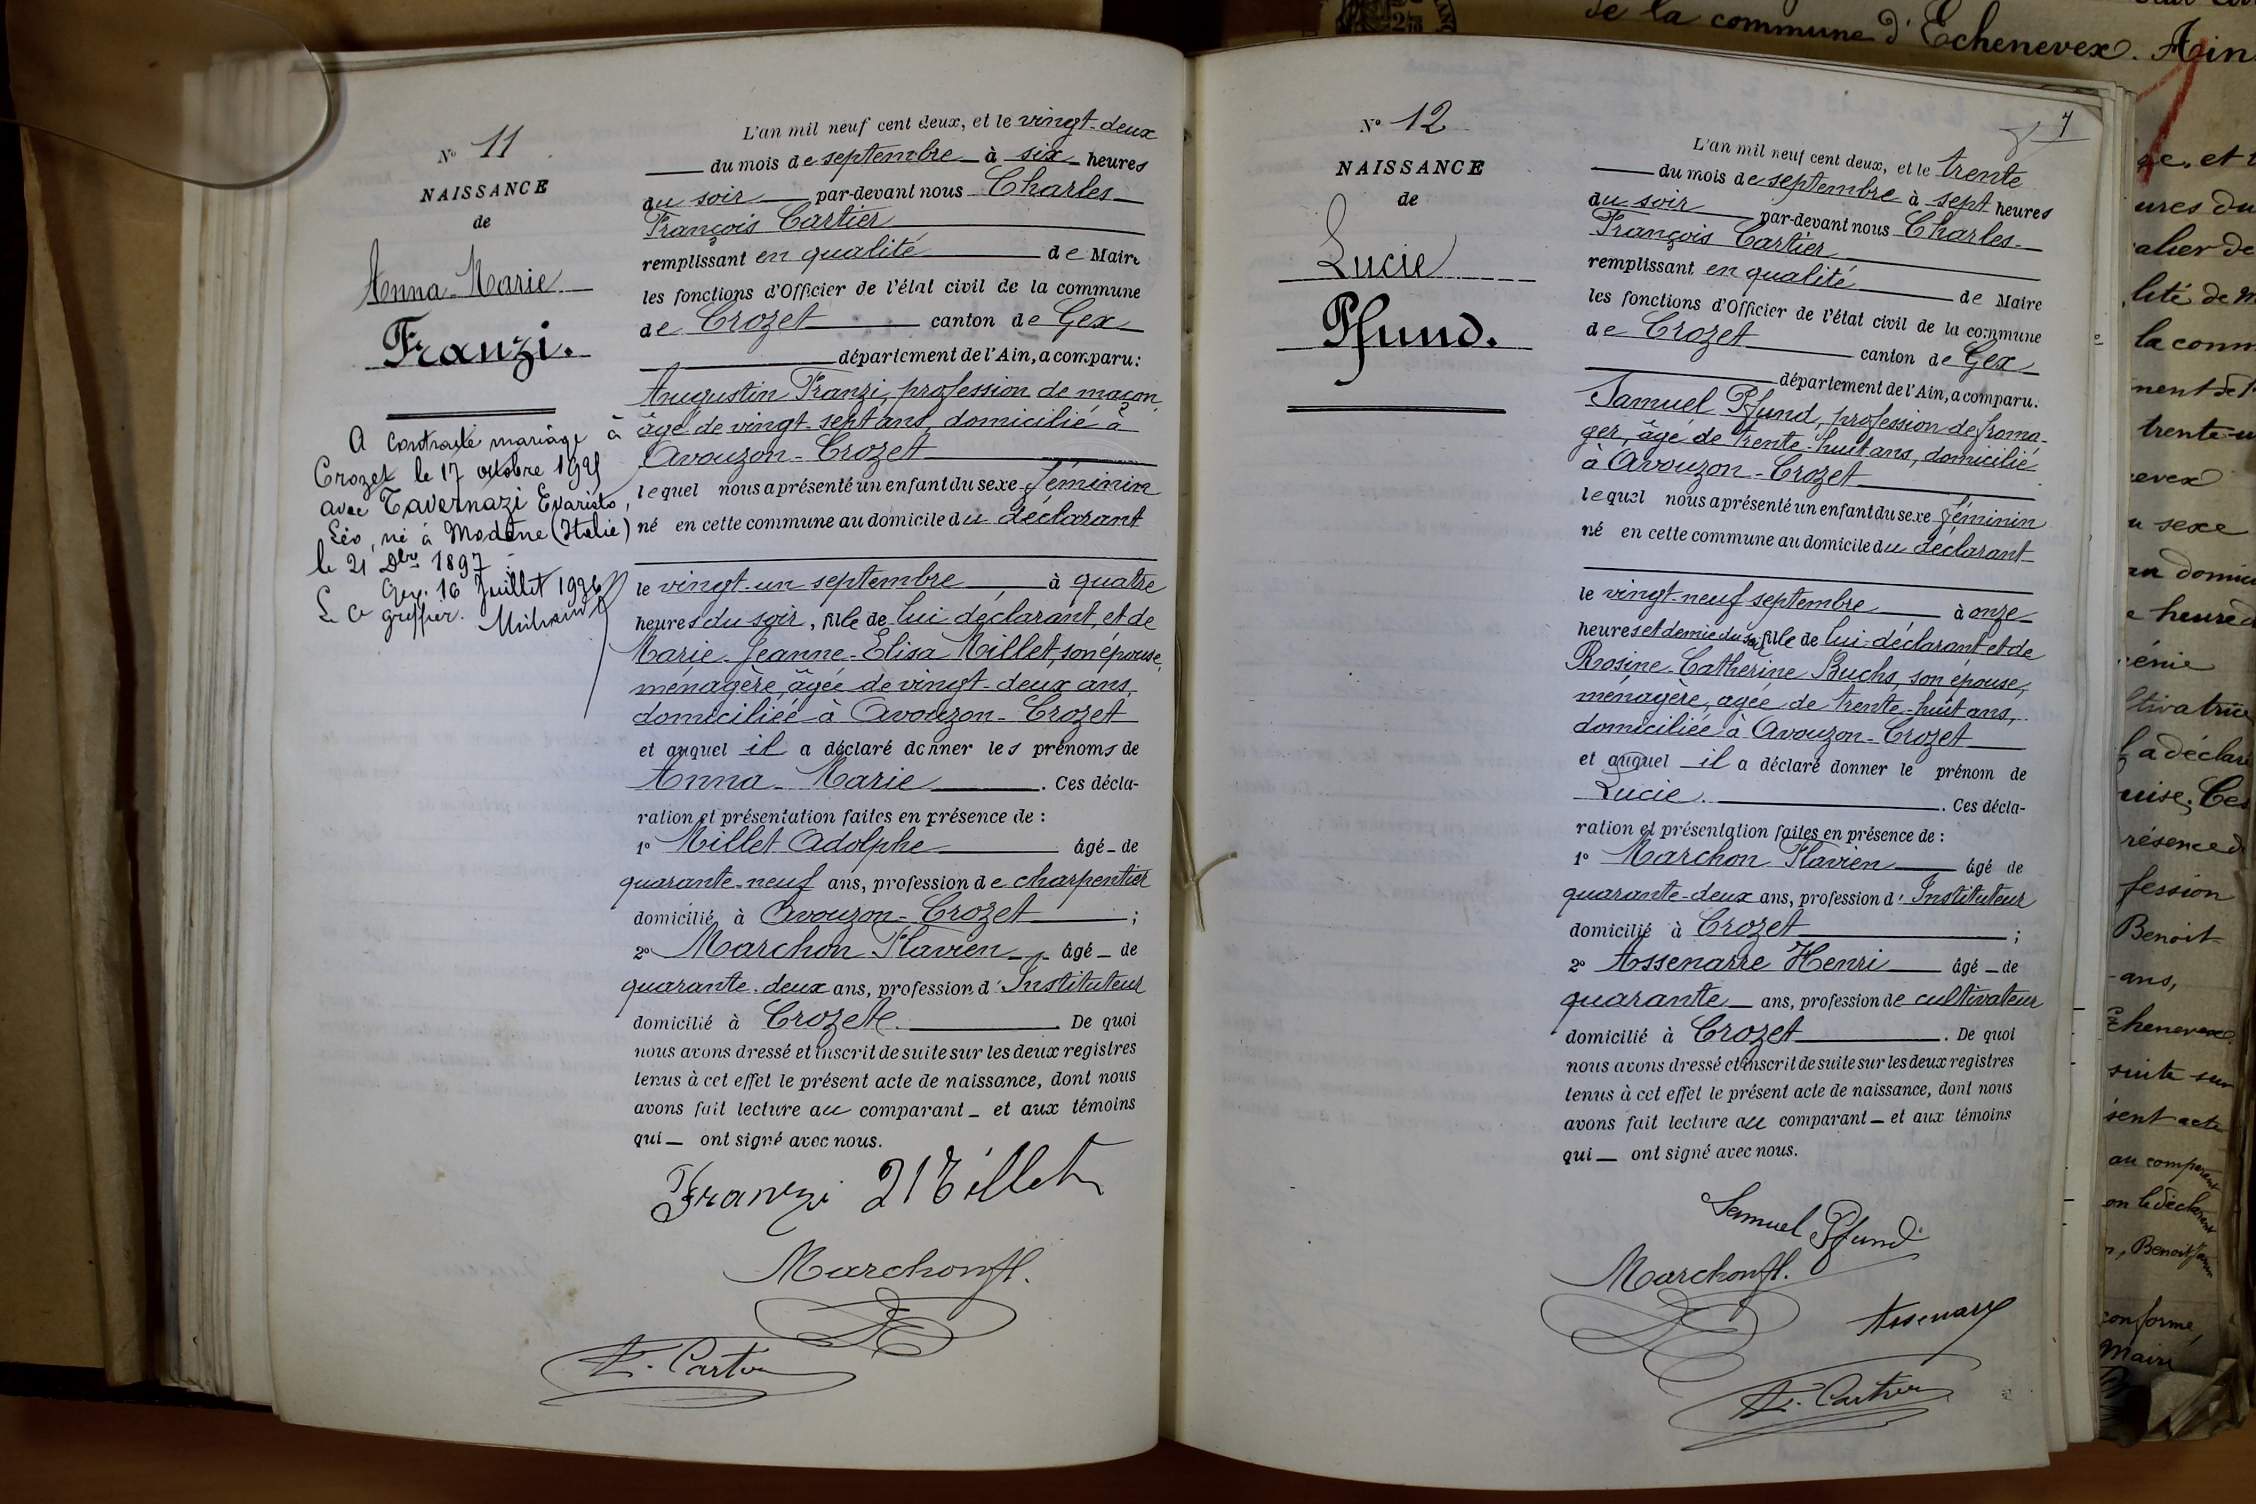 de la commune d'Echenevex. Ain
N° 11
NAISSANCE
de
Anna-Marie
Franzi.
A contracté mariage à
Crozet le 17 octobre 1925
avec Tavernazi Evaristo,
Léo, né à Modène (Italie)
le 21 Dbre 1897
Gex. 16 Juillet 1926
Le greffier.
L'an mil neuf cent deux, et le vingt-deux
du mois de septembre à six heures
du soir par-devant nous Charles
François Cartier
remplissant en qualité de Maire
les fonctions d'Officier de l'état civil de la commune
de Crozet canton de Gex
département de l'Ain, a comparu:
Augustin Franzi, profession de maçon,
âgé de vingt-sept ans, domicilié à
Avouzon-Crozet
lequel nous a présenté un enfant du sexe féminin
né en cette commune au domicile du déclarant
le vingt-un septembre à quatre
heures du soir, fille de lui déclarant, et de
Marie-Jeanne-Elisa Millet, son épouse,
ménagère, âgée de vingt-deux ans,
domiciliée à Avouzon-Crozet
et auquel il a déclaré donner les prénoms de
Anna-Marie. Ces décla-
ration et présentation faites en présence de :
1° Millet Adolphe âgé de
quarante-neuf ans, profession de charpentier
domicilié à Avouzon-Crozet ;
2° Marchon Flavien âgé de
quarante-deux ans, profession d'Instituteur
domicilié à Crozet. De quoi
nous avons dressé et inscrit de suite sur les deux registres
tenus à cet effet le présent acte de naissance, dont nous
avons fait lecture au comparant et aux témoins
qui ont signé avec nous.
Franzi Millet
Marchon fl.
F. Cartier
7
N° 12
NAISSANCE
de
Lucie
Pfund.
L'an mil neuf cent deux, et le trente
du mois de septembre à sept heures
du soir par-devant nous Charles-
François Cartier
remplissant en qualité de Maire
les fonctions d'Officier de l'état civil de la commune
de Crozet canton de Gex
département de l'Ain, a comparu.
Samuel Pfund, profession de froma-
ger, âgé de trente-huit ans, domicilié
à Avouzon-Crozet
lequel nous a présenté un enfant du sexe féminin
né en cette commune au domicile du déclarant
le vingt-neuf septembre à onze
heures et demie du soir, fille de lui déclarant et de
Rosine-Catherine Buchs, son épouse,
ménagère, agée de trente-huit ans,
domiciliée à Avouzon-Crozet
et auquel il a déclaré donner le prénom de
Lucie. Ces décla-
ration et présentation faites en présence de :
1° Marchon Flavien âgé de
quarante-deux ans, profession d'Instituteur
domicilié à Crozet ;
2° Assenarre Henri âgé de
quarante ans, profession de cultivateur
domicilié à Crozet. De quoi
nous avons dressé et inscrit de suite sur les deux registres
tenus à cet effet le présent acte de naissance, dont nous
avons fait lecture au comparant et aux témoins
qui ont signé avec nous.
Samuel Pfund
Marchon fl.
Assenarre
F. Cartier
ures du
alier de
lité de M
la comm
trente-u
nevex
u sexe
au domici
e heure d
énie
ltivatrice
l a déclaré
uise. Ces
résence d
fession
Benoit
ans,
Echenevex
suite sur
sent acte
au comparant
on le déclarant
Benoit
conforme,
Maire